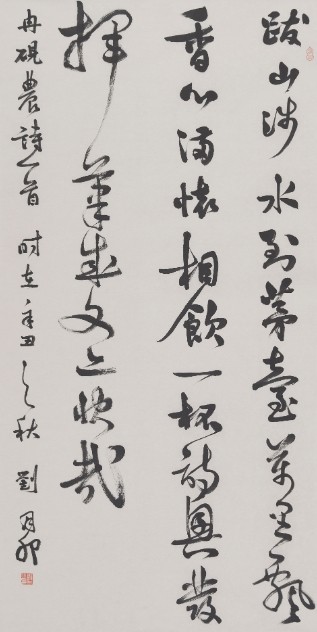 跋山涉水到茅臺萬里飄
香心滿懷相飲一杯詩興發
揮筆成文亦快哉
冉硯農詩一首 时在辛丑之秋 劉月卯